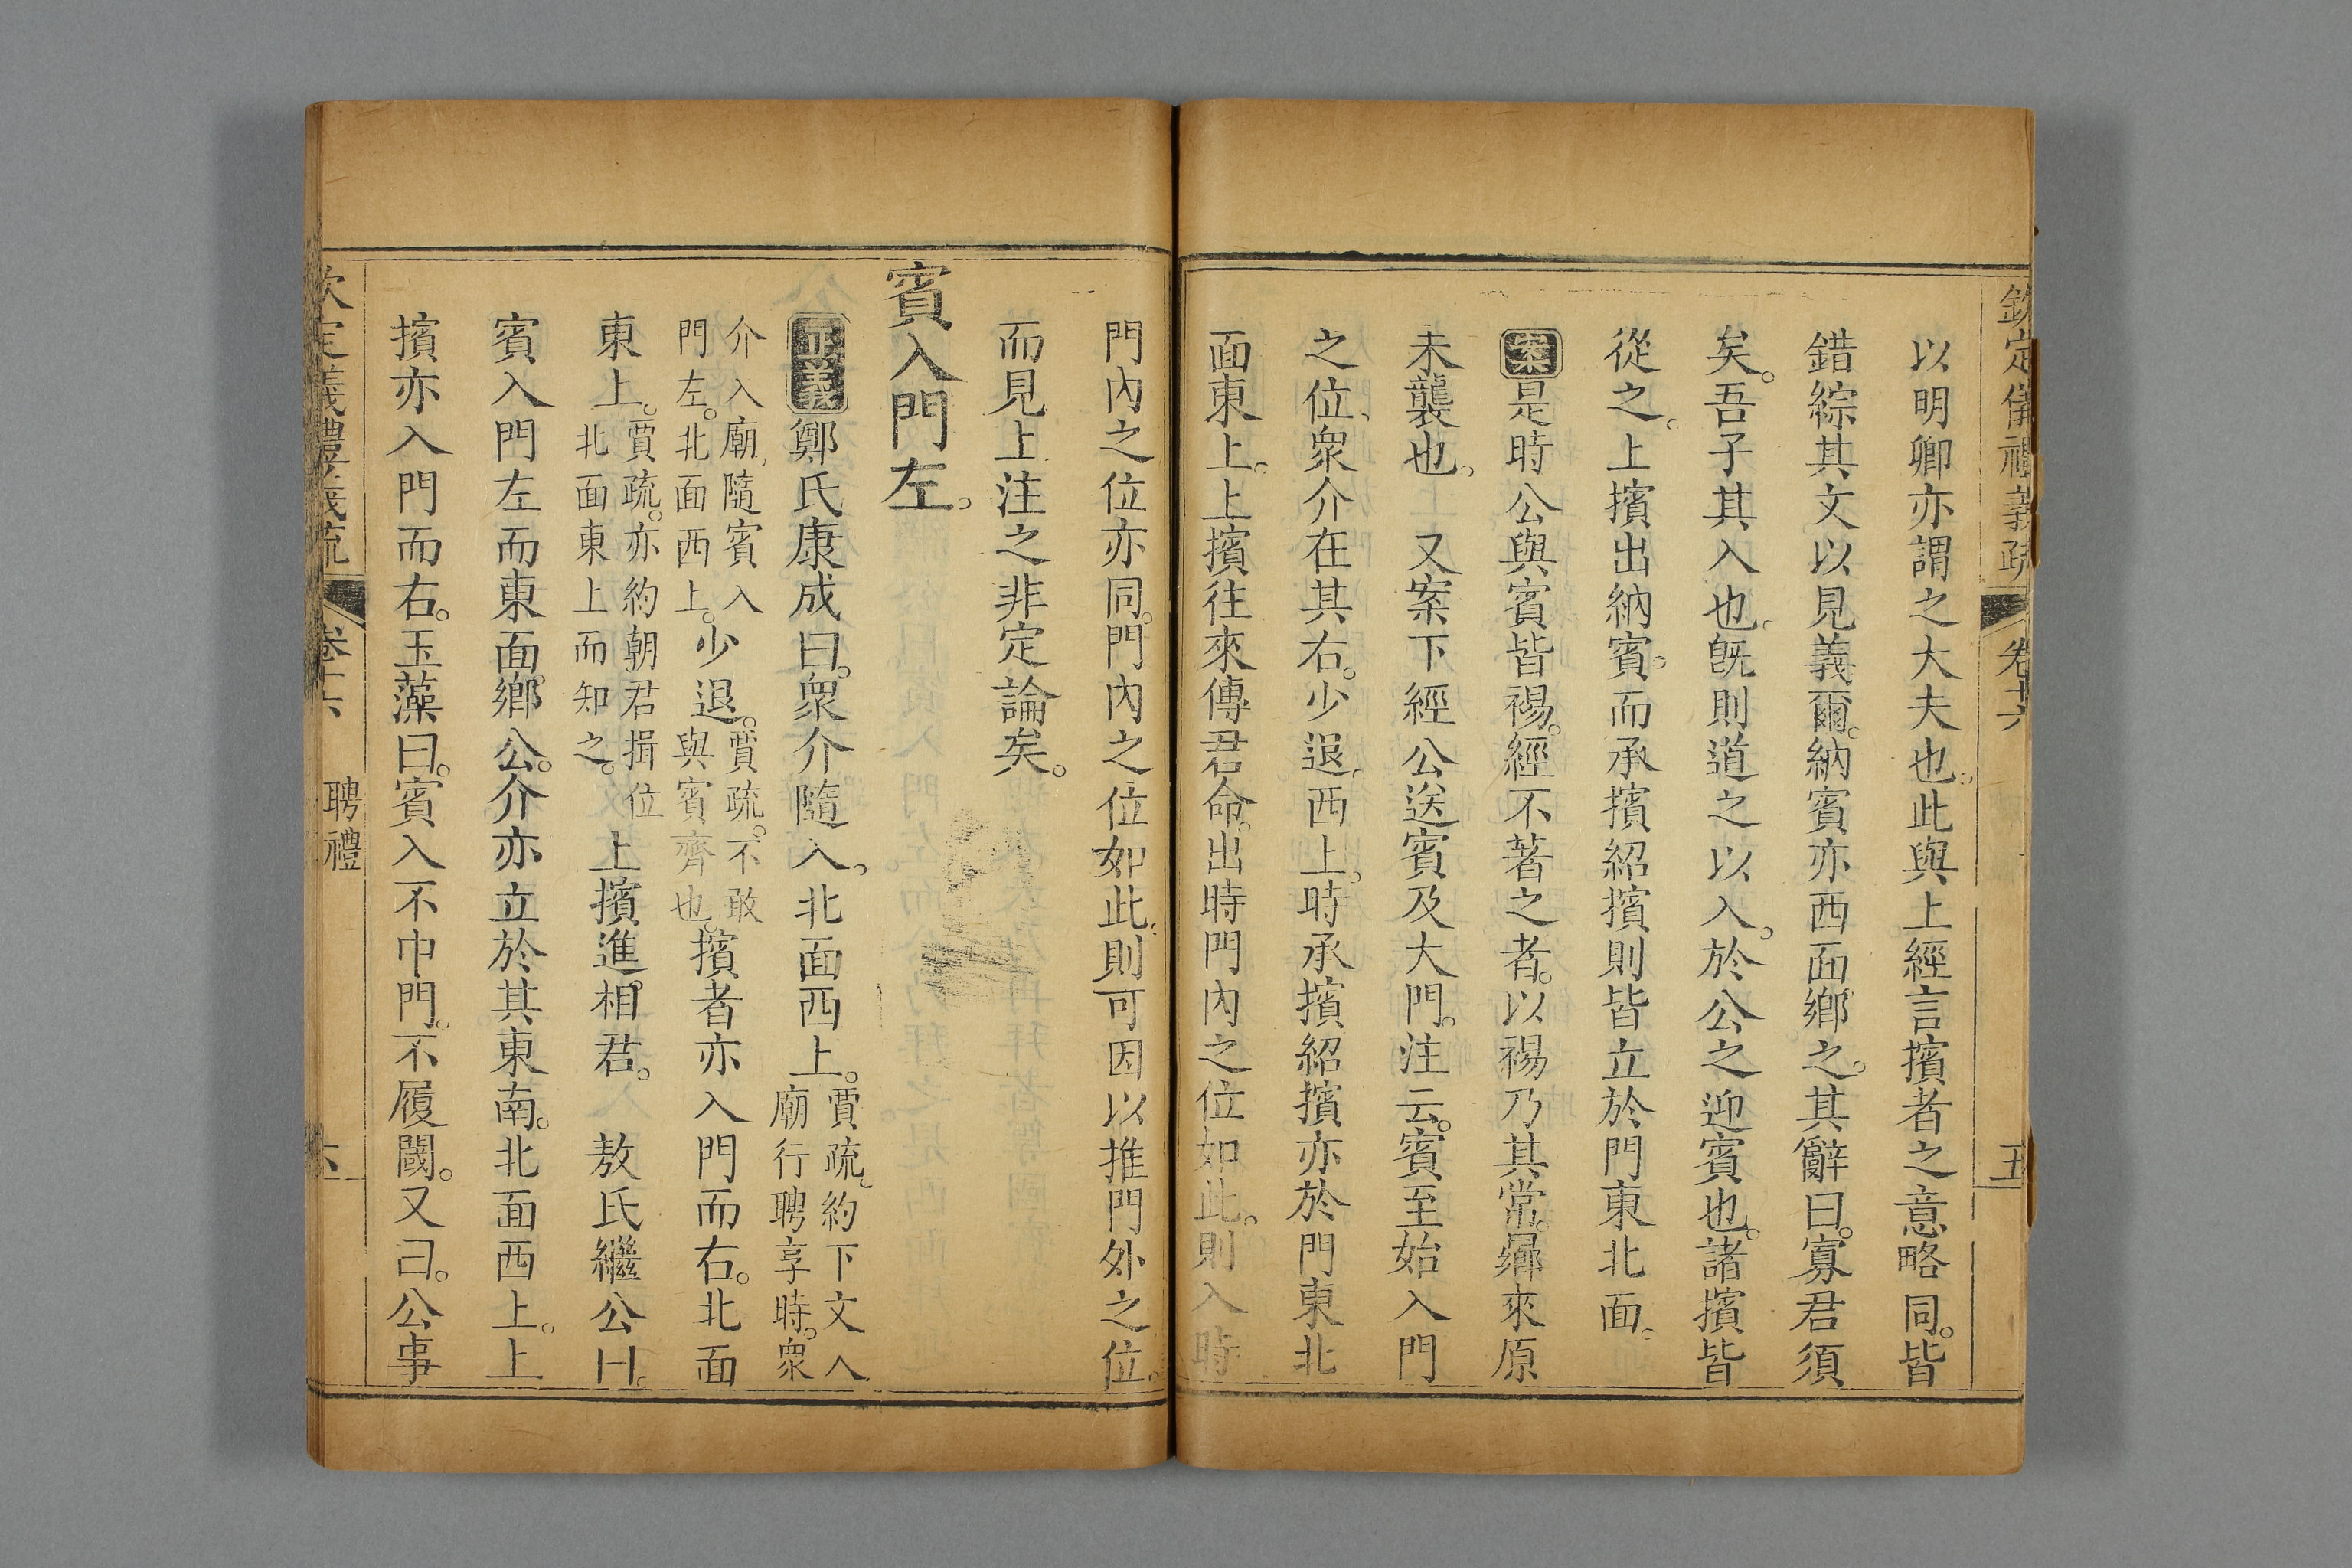 欽定儀禮義疏 卷十六 五
以明卿亦謂之大夫也。此與上經言擯者之意略同。皆
錯綜其文以見義爾。納賓亦西面鄉之。其辭曰。寡君須
矣。吾子其入也。旣則道之以入。於公之迎賓也。諸擯皆
從之。上擯出納賓。而承擯紹擯則皆立於門東北面。
案是時公與賓皆裼。經不著之者。以裼乃其常。曏來原
未襲也。 又案下經公送賓及大門。注云。賓至始入門
之位。衆介在其右。少退。西上。時承擯紹擯亦於門東北
面東上。上擯往來傳君命。出時門內之位如此。則入時
門內之位亦同。門內之位如此。則可因以推門外之位。
而見上注之非定論矣。
賓入門左。
正義鄭氏康成曰。衆介隨入。北面西上。賈疏。約下文入廟行聘享時。衆
介入廟。隨賓入門左。北面西上。少退。賈疏。不敢與賓齊也。擯者亦入門而右。北面
東上。賈疏。亦約朝君揖位北面東上而知之。上擯進相君。 敖氏繼公曰。
賓入門左而東面鄉公。介亦立於其東南。北面西上。上
擯亦入門而右。玉藻曰。賓入不中門。不履閾。又曰。公事
欽定儀禮義疏 卷十六 聘禮 六